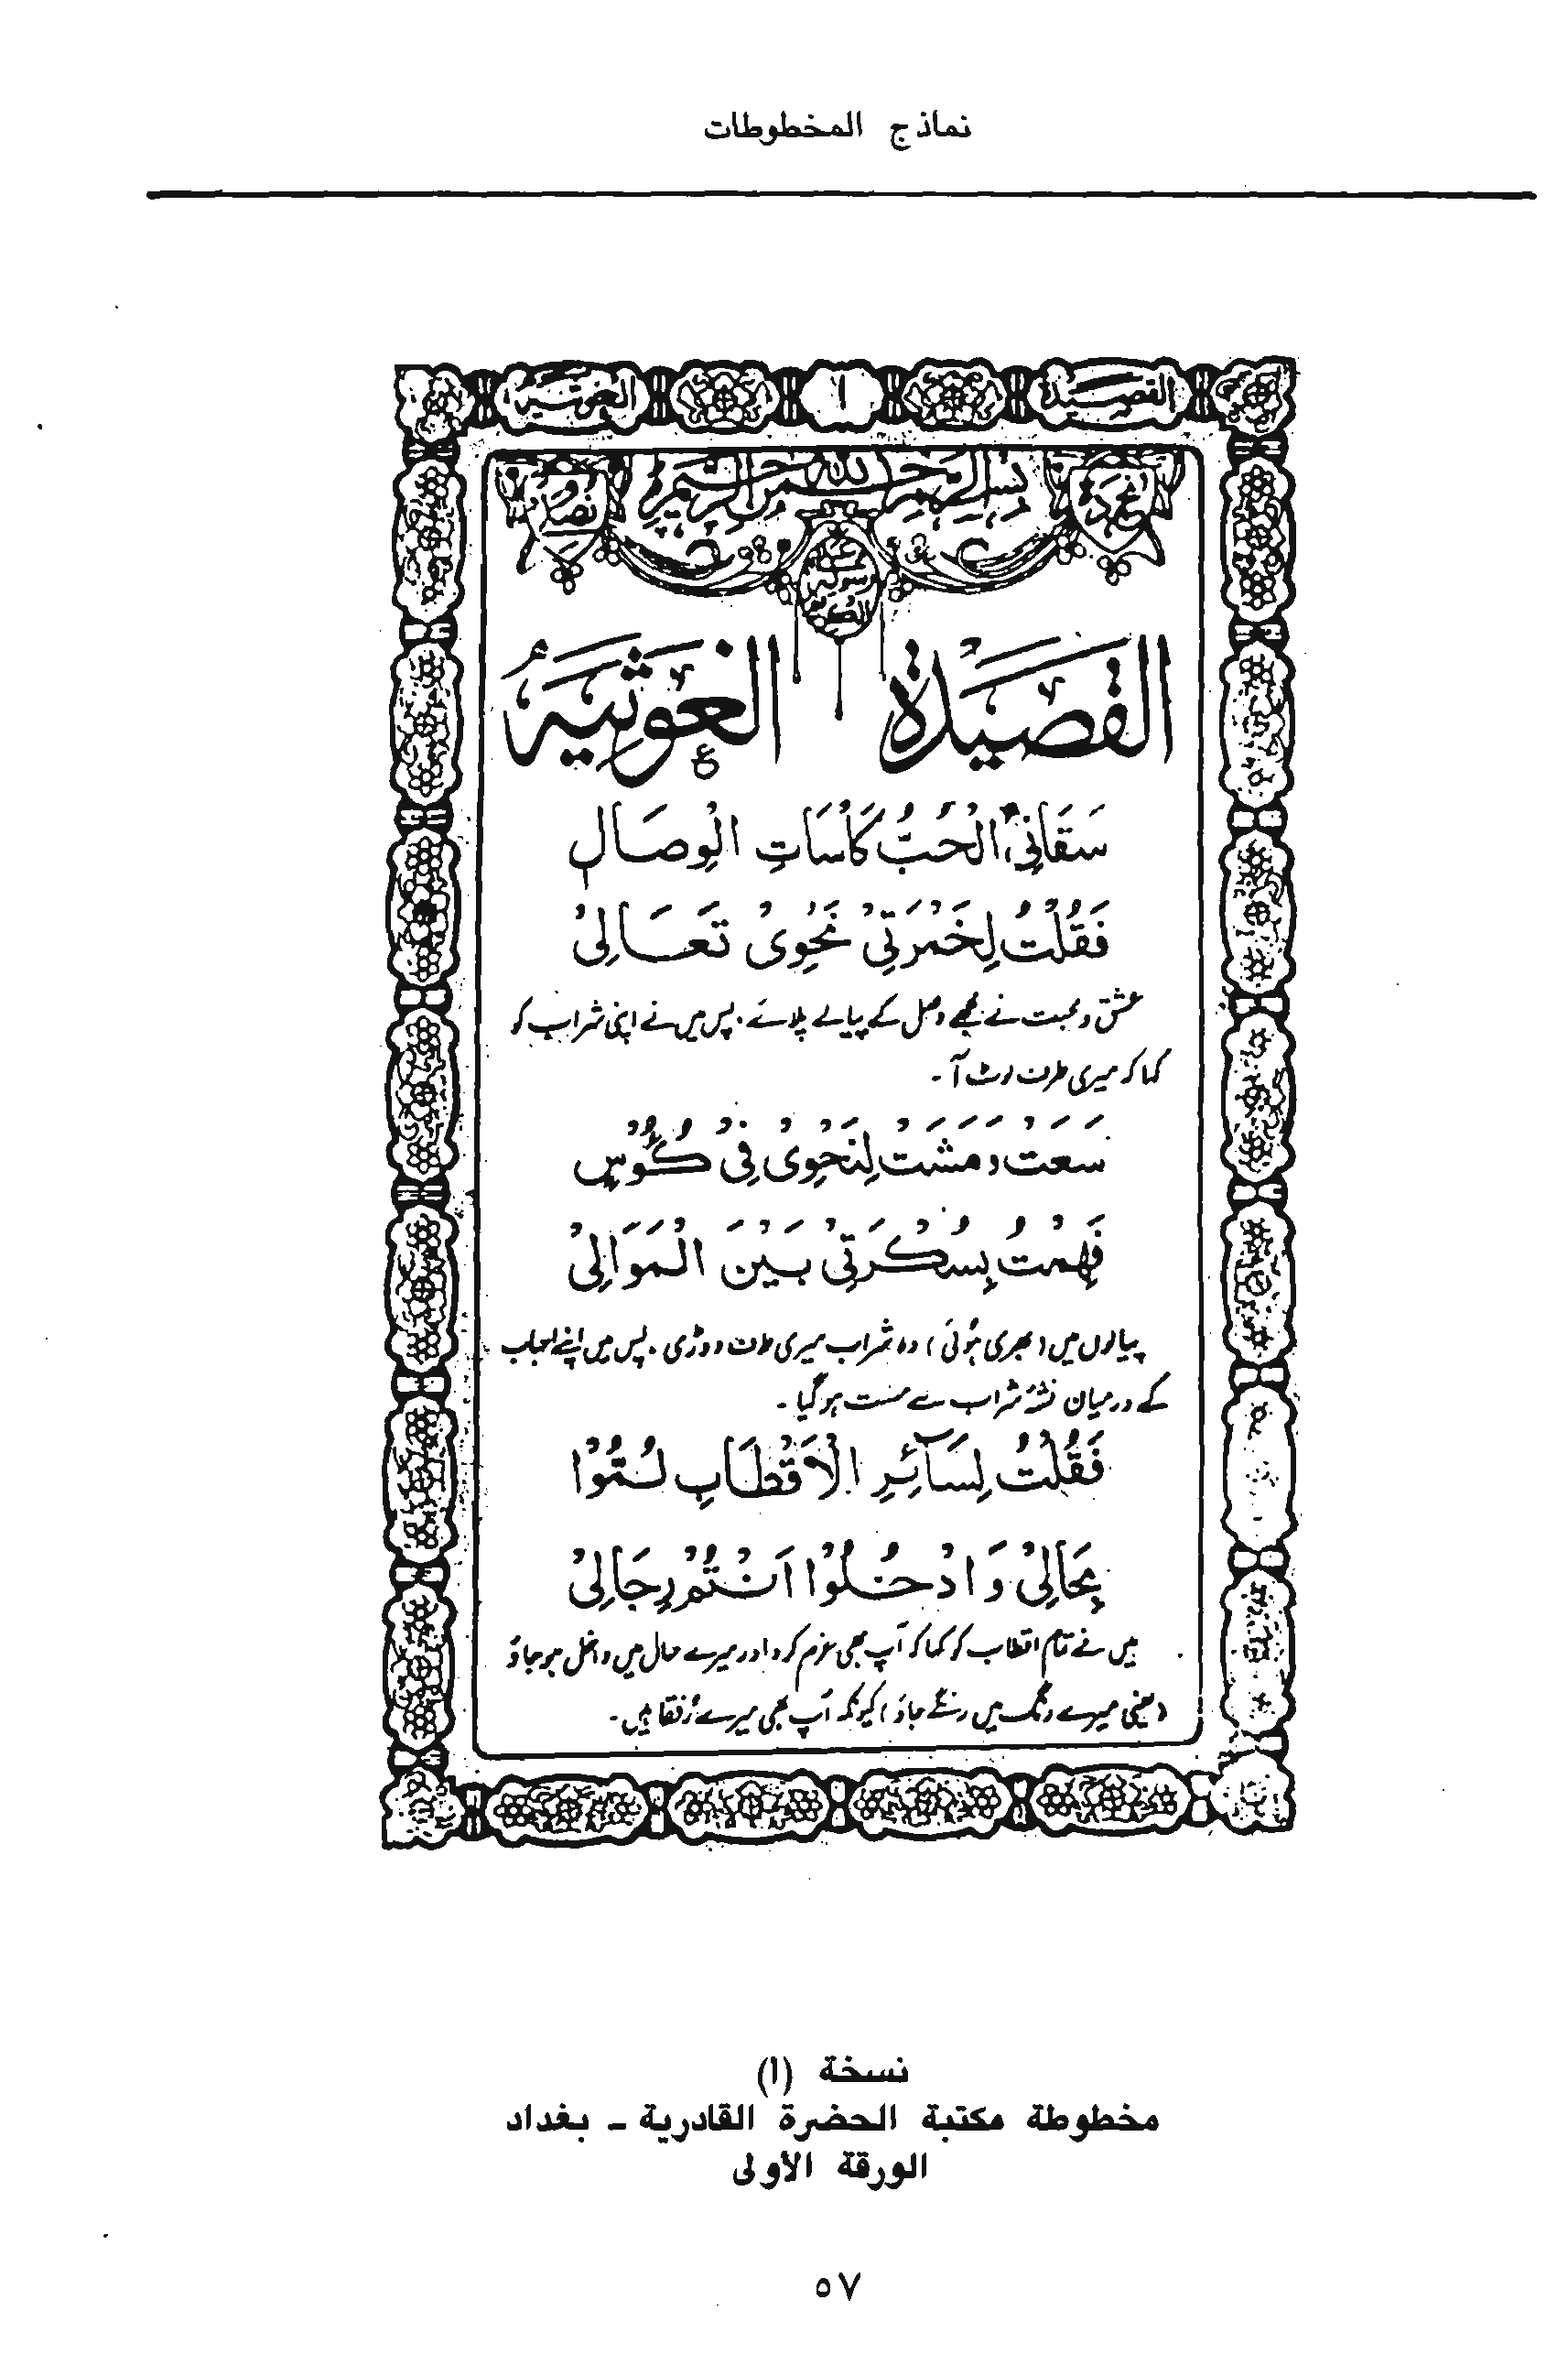 نماذج المخطوطات
القصيدة
١
الغوثية
بسم الله الرحمن الرحيم
نحمده
القصيدة الغوثية
سَقَانِي الْحُبُّ كَأْسَاتِ الْوِصَالِ
فَقُلْتُ لِخَمْرَتِيْ نَحْوِيْ تَعَالِيْ
عشق و محبت نے مجھے وصل کے پیالے پلائے، پس میں نے اپنی شراب کو
کہا کہ میری طرف لوٹ آ۔
سَعَتْ وَمَشَتْ لِنَحْوِيْ فِيْ كُئُوْسٍ
فَهِمْتُ بِسُكْرَتِيْ بَيْنَ الْمَوَالِيْ
پیالوں میں (بھری ہوئی) وہ شراب میری طرف دوڑی، پس میں اپنے احباب
کے درمیان نشۂ شراب سے مست ہو گیا۔
فَقُلْتُ لِسَآئِرِ الْاَقْطَابِ لُمُّوْا
بِحَالِيْ وَادْخُلُوْا اَنْتُمْ رِجَالِيْ
میں نے تمام اقطاب کو کہا کہ آپ بھی عزم کرو اور میرے حال میں داخل ہو جاؤ
(یعنی میرے رنگ میں رنگے جاؤ) کیونکہ آپ بھی میرے رفقا ہیں۔
نسخة (ا)
مخطوطة مكتبة الحضرة القادرية – بغداد
الورقة الأولى
٥٧